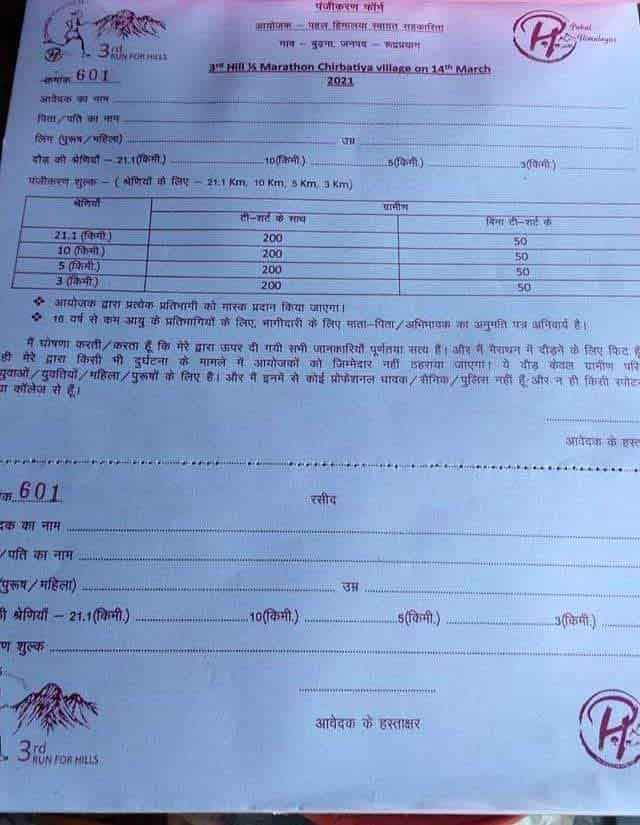 पंजीकरण फॉर्म
आयोजक – पहल हिमालया स्वायत सहकारिता
गाव – बुढना, जनपद – रूद्रप्रयाग
3rd
RUN FOR HILLS
Pahal
Himalayas
क्रमांक 601
3rd Hill ½ Marathon Chirbatiya village on 14th March
2021
आवेदक का नाम
पिता/पति का नाम
लिंग (पुरूष/महिला) उम्र
दौड की श्रेणियाँ – 21.1(किमी.) 10(किमी.) 5(किमी.) 3(किमी.)
पंजीकरण शुल्क – ( श्रेणियों के लिए – 21.1 Km, 10 Km, 5 Km, 3 Km)
श्रेणियाँ ग्रामीण
टी–शर्ट के साथ बिना टी–शर्ट के
21.1 (किमी.) 200 50
10 (किमी.) 200 50
5 (किमी.) 200 50
3 (किमी.) 200 50
❖ आयोजक द्वारा प्रत्येक प्रतिभागी को मास्क प्रदान किया जाएगा।
❖ 16 वर्ष से कम आयु के प्रतिभागियों के लिए, भागीदारी के लिए माता–पिता/अभिभावक का अनुमति पत्र अनिवार्य है।
मैं घोषणा करती/करता हूँ कि मेरे द्वारा ऊपर दी गयी सभी जानकारियाँ पूर्णतया सत्य है। और मैं मैराथन में दौड़ने के लिए फिट हूँ
ही मेरे द्वारा किसी भी दुर्घटना के मामले में आयोजकों को जिम्मेदार नहीं ठहराया जाएगा। ये दौड़ केवल ग्रामीण परि
युवाओं/युवतियों/महिला/पुरूषों के लिए है। और मैं इनमें से कोई प्रोफेशनल धावक/सैनिक/पुलिस नहीं हूँ और न ही किसी स्पोर्ट
या कॉलेज से हूँ।
आवेदक के हस्ता
क 601
रसीद
दक का नाम
/पति का नाम
(पुरूष/महिला) उम्र
ी श्रेणियाँ – 21.1(किमी.) 10(किमी.) 5(किमी.) 3(किमी.)
ण शुल्क
आवेदक के हस्ताक्षर
3rd
RUN FOR HILLS